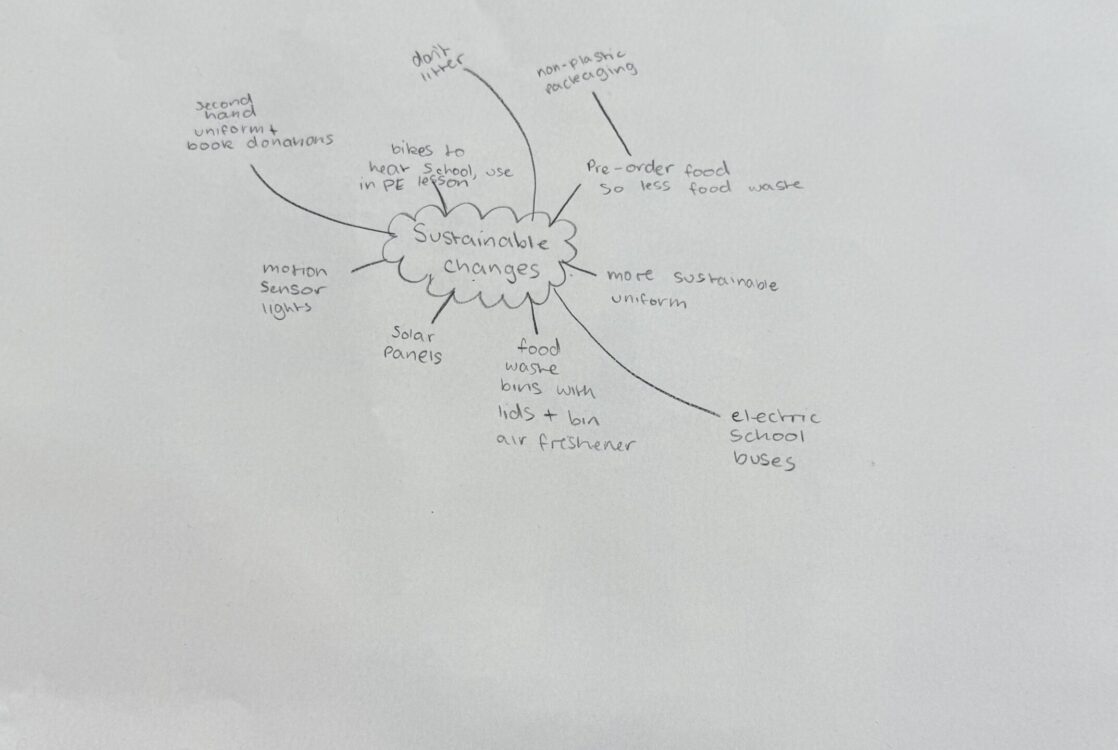 don't
litter
non-plastic
packaging
second
hand
uniform +
book donations
bikes to
hear school, use
in PE lesson
Pre-order food
so less food waste
Sustainable
changes
motion
sensor
lights
more sustainable
uniform
solar
panels
food
waste
bins with
lids + bin
air freshener
electric
school
buses